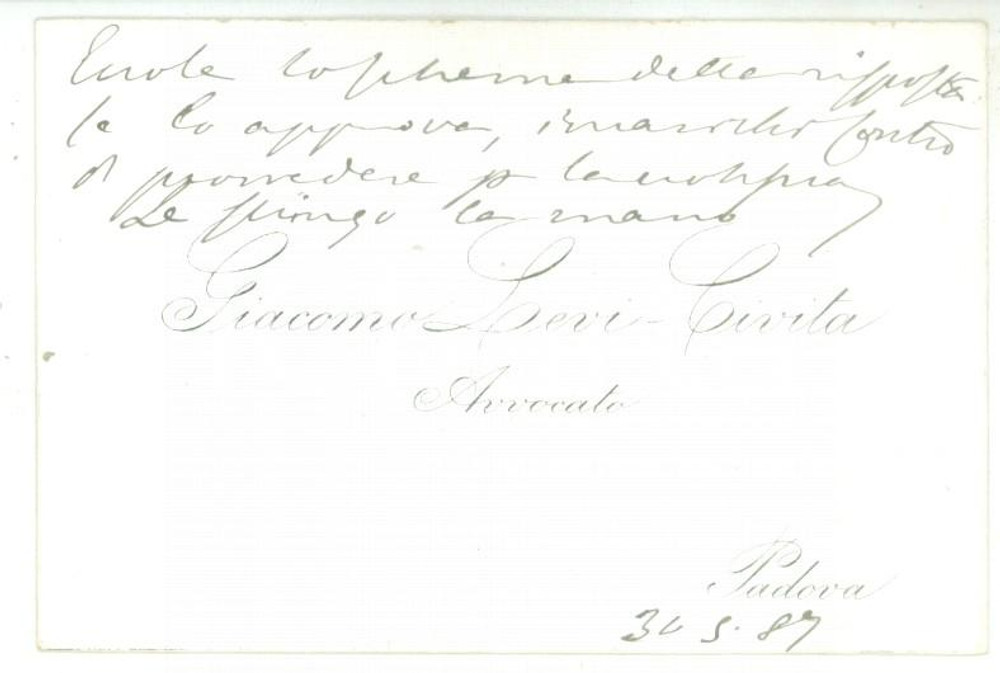 lo schema della risposta
se lo approva,
di provvedere p la notifica
Le stringo la mano
Giacomo Levi-Civita
Avvocato
Padova
30 5. 87